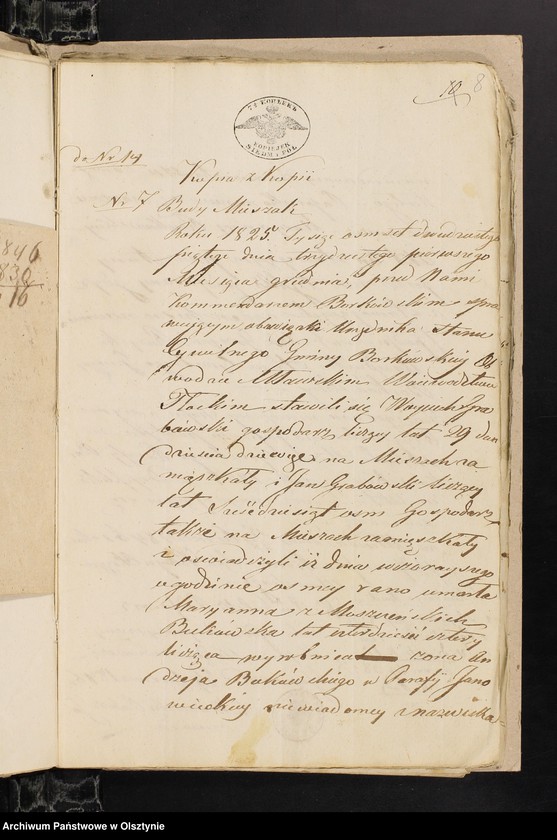 10 8
7½ KOПѢЕКЪ
KOPIEJEK
SIEDM I PÓŁ
do Nr 14
Kopia z Kopii
Nr 7 Budy Mieszak
Roku 1825. Tysiąc osmset dwudziestego
piątego dnia trzydziestego pierwszego
Miesiąca grudnia, przed Nami
Kommendanem Borkowskim spra
wującym obowiązki Urzędnika Stanu
Cywilnego Gminy Borkowskiey Ob
wodzie Mławskim Woiewództwie
Płockim stawili się Woyciech Gra
bowski gospodarz liczący lat 29 dwu
dziescia dziewięć na Mieszach za
mięszkały i Jan Grabowski liczący
lat Sześdziesiąt osm Gospodarz
także na Mieszach zamięszkały
i oswiadczyli iż dnia wczorayszego
o godzinie osmey rano umarła
Maryanna z Moszczeńskich
Bukowska lat czterdzieści cztery
licząca wyrobnica żona An
dzeja Bukowskiego w Parafij Jano
wieckiey niewiadomey z nazwiska
1846
1830
16
Archiwum Państwowe w Olsztynie